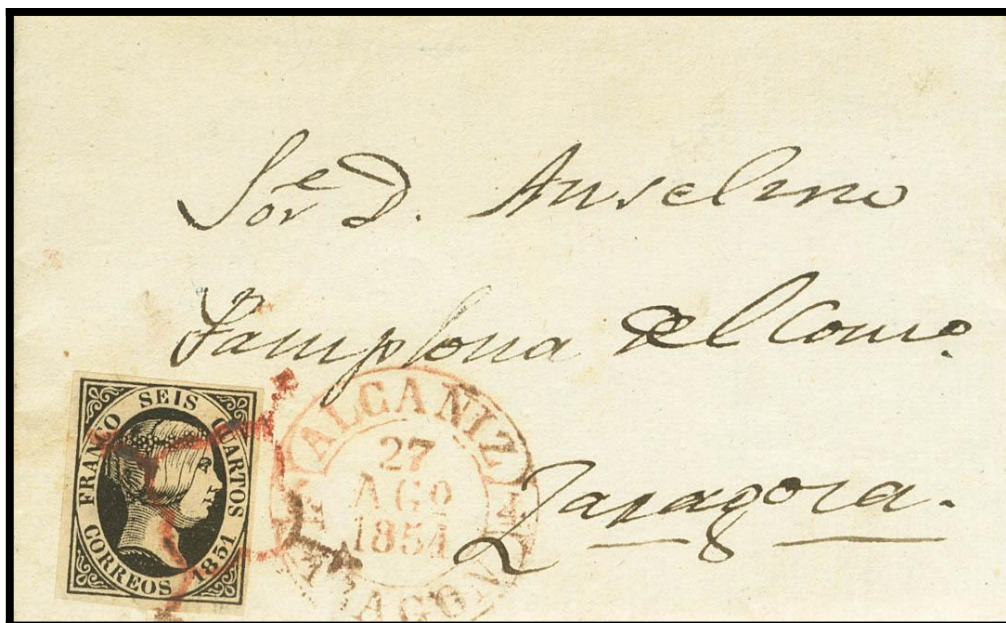 Sor.e D. Anselmo
Pamplona del Comº.
Zaragoza.
FRANCO SEIS CUARTOS
CORREOS 1851
ALCAÑIZ
27
AGO
1851
ARAGON